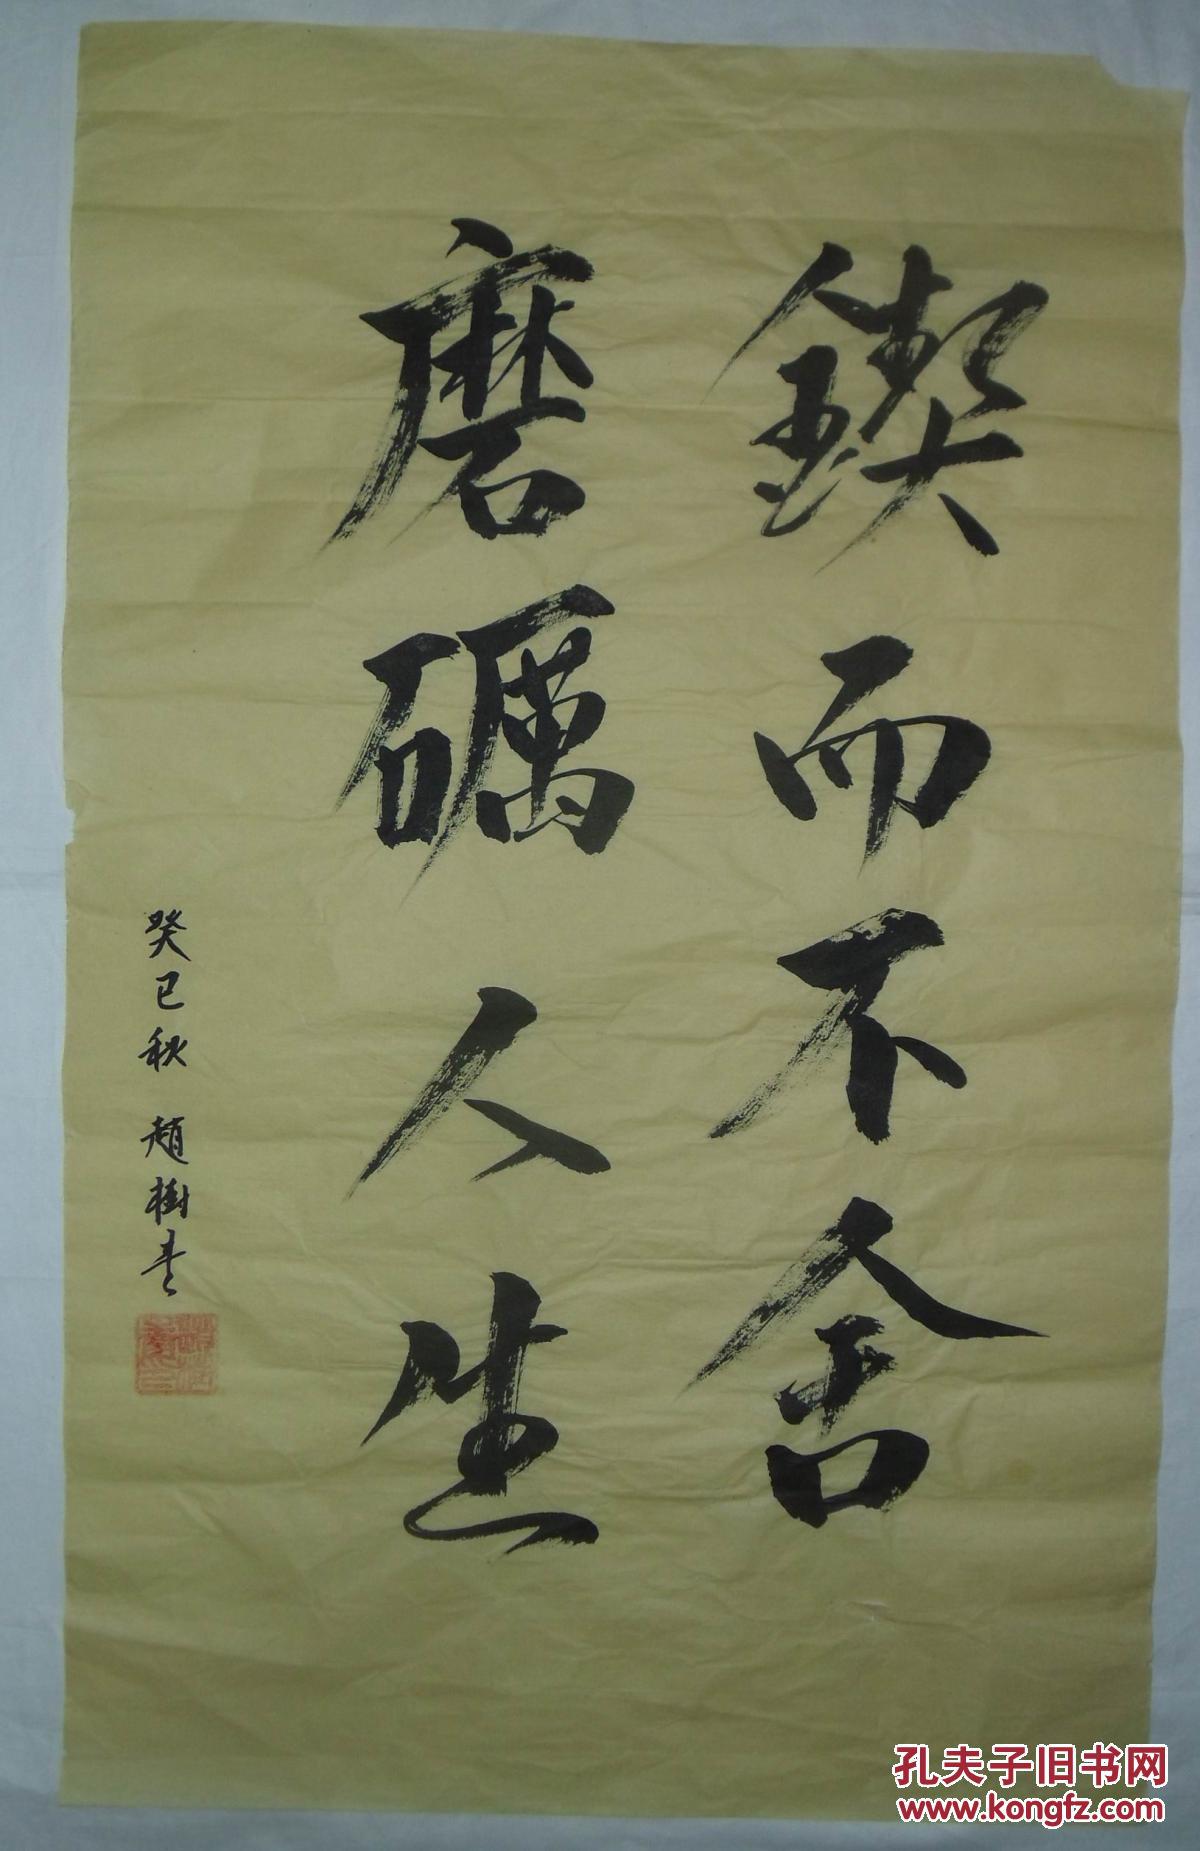 鍥而不舍
磨礪人生
癸巳秋 趙樹
孔夫子旧书网
www.kongfz.com